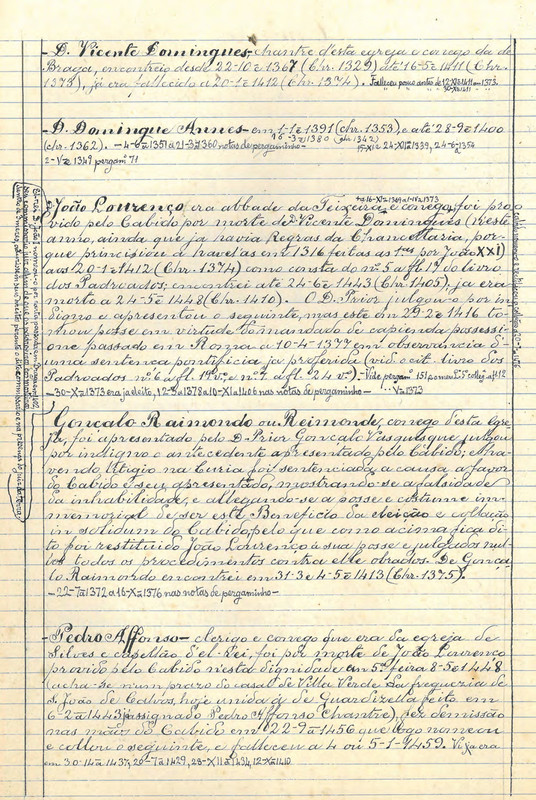 - D. Vicente Domingues - chantre d'esta egreja e conego da de
Braga, encontreio desde 22-10º 1367 (Chr. 1329) até 16-5º 1411 (Chr.
1373), já era fallecido a 20-1º 1412 (Chr. 1374). Falleceu pouco antes de 12-XIIº 1411 - 1373.
- D. Domingue Annes - em 1-1º 1391 (chr. 1353) e até 28-9º 1400
(chr. 1362). - 4-6º 1351 a 21-3º 1360 notas de pergaminho -
2-Vº 1349 pergamº 71
João Lourenço, era abbade da Teixeira, e conego, foi pro
vido pelo Cabido por morte de D. Vicente Domingues (n'este
anno, ainda que já havia Regras da Chancellaria, por-
que principiou a havel-as em 1316 feitas as 1.as por João XXI)
aos 20-1º 1412 (Chr. 1374) como consta do nº 5 a fl. 1º do livro
dos Padroados; encontrei até 24-6º 1443 (Chr. 1405), já era
morto a 24-5º 1448 (Chr. 1410). O D. Prior julgou-o por in
digno e apresentou o seguinte, mas este em 29-2º 1416 to-
mou posse em virtude do mandado de capienda possessi-
one passado em Roma a 10-4º 1377 em observancia d'
uma sentença pontificia ja proferida (vid. o cit. livro dos
Padroados nº 6 a fl. 19 v.º e nº 7 a fl. 24 v.º) - Vide pergamº 151
- 30-Xº 1373 era já eleito, 12-3º 1378 a 10-XIº 1406 nas notas de pergaminho - Vº 1373
Gonçalo Raimondo ou Reimonde, conego d'esta Egre
ja, foi apresentado pelo D. Prior Gonçalo Vasques que julgou
por indigno o antecedente apresentado pelo Cabido, e ha-
vendo litigio na Curia foi sentenciada a causa a favor
do Cabido e seu apresentado, mostrando-se a falsidade
da inhabilidade, e allegando-se a posse e costume im-
memorial de ser esta Beneficio da eleição e collação
in solidum do Cabido, pelo que como acima fica di-
to foi restituido João Lourenço á sua posse e julgados nul-
los todos os procedimentos contra elle obrados. De Gonça
lo Raimondo encontrei em 31-3º e 4-5º 1413 (Chr. 1375).
- 22-7º 1372 a 16-Xº 1376 nas notas de pergaminho -
- Pedro Affonso - clerigo e conego que era da egreja de
Silves e capellão d'el-Rei, foi por morte de João Lourenço
provido pelo Cabido n'esta dignidade em 5ª feira 8-5º 1448
(acha-se n'um prazo do casal de Villa Verde da freguezia de
S. João de Calvos, hoje unida á de Guardizella feito em
6-2º 1443 assignado Pedro Affonso Chantre), fez demissão
nas mãos do Cabido em 22-9º 1456 que logo nomeou
e collou o seguinte, e falleceu a 4 ou 5-1-º 1459. Vi já era
em 30-14º 1437, 20-7º 1429, 28-XIIº 1434, 12-Xº 1410